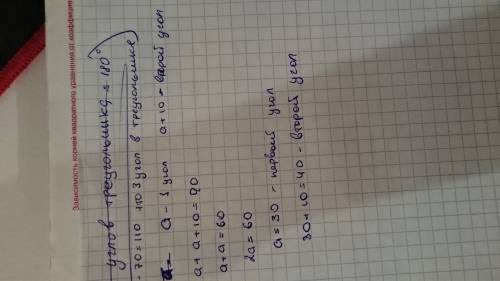 Зависимость корней квадратного уравнения от коэффици
углов треугольника = 180°
- 70 = 110 110 3 угол в треугольнике)
а - 1 угол а + 10 - второй угол
а + а + 10 = 70
а + а = 60
2а = 60
а = 30 - первый угол
30 + 10 = 40 - второй угол